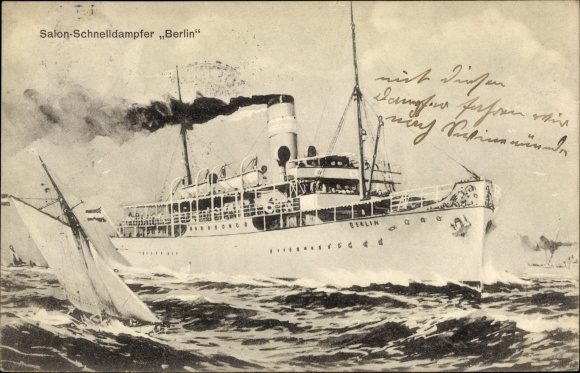 Salon-Schnelldampfer „Berlin“
mit diesem
Dampfer fahren wir
nach Swinemünde
BERLIN